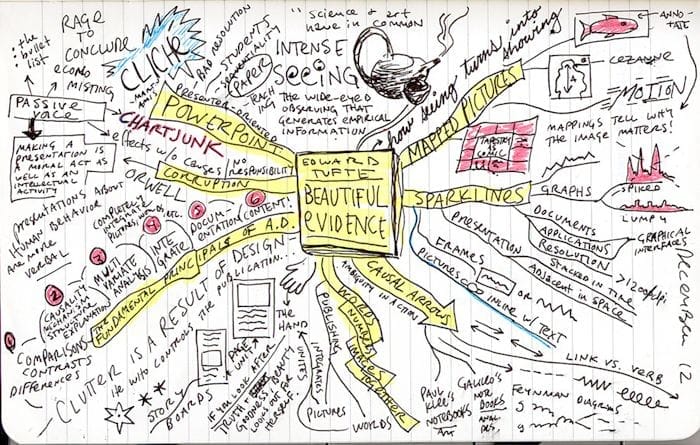 : the
bullet
list
RAGE
TO
CONCLUDE
ECONO
MISTING
PASSIVE
VOICE
MAKING A
PRESENTATION IS
A MORAL ACT AS
WELL AS AN
INTELLECTUAL
ACTIVITY
CLICHE
BAD RESOLUTION
STUDENTS
SEQUENTIALITY
PAPER
TEACHING
PRESENTER-ORIENTED
POWERPOINT
CHARTJUNK
effects w/o causes
NO
RESPONSIBILITY
CORRUPTION
ORWELL
"science & art
have in common
INTENSE
SEEING:
THE WIDE-EYED
OBSERVING THAT
GENERATES EMPIRICAL
INFORMATION
how seeing turns into
showing
MAPPED PICTURES
ANNO-
TATE
CEZANNE
MOTION
MAPPINGS TELL WHY
THE IMAGE MATTERS!
TAPESTRY
COMIC
EDWARD
TUFTE
BEAUTIFUL
EVIDENCE
SPARKLINES
GRAPHS
SPIKED
LUMPY
PRESENTATION
DOCUMENTS
APPLICATIONS
RESOLUTION
STACKED IN TIME
ADJACENT IN SPACE
GRAPHICAL
INTERFACES
FRAMES
OR
PICTURES
INLINE w/ TEXT
presentations about
human behavior
are more
verbal
FUNDAMENTAL PRINCIPALS OF A.D.
1
COMPARISONS
CONTRASTS
DIFFERENCES
2
CAUSALITY
MECHANISM
STRUCTURE
EXPLANATION
3
MULTI
VARIATE
ANALYSIS
4
COMPLETELY
INTEGRATE
PICTURES, WORDS
ETC.
INTE
GRATE
5
DOCUM-
ENTATION
6
CONTENT!
CLUTTER IS A RESULT OF DESIGN
He who CONTROLS THE PUBLICATION...
STORY
BOARDS
PAGE
UNIT
THE
HAND
UNITES
TRUTH
GOODNESS
BEAUTY
LOOKS OUT FOR
HERSELF.
PUBLISHING
INTEGRATES
PICTURES
WORDS
WORDS
NUMBERS
IMAGES
TOGETHER
CAUSAL ARROWS
AMBIGUITY IN ACTION
LINK VS. VERB
PAUL
KLEE'S
NOTEBOOKS
GALILEO'S
NOTE
BOOKS
FEYNMAN
DIAGRAMS
December 12